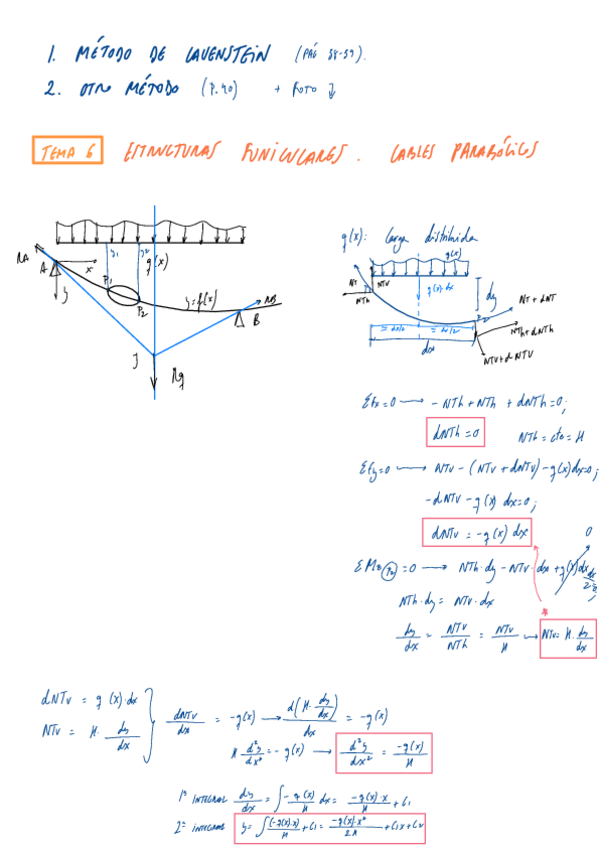 1. MÉTODO DE LAVENSTEIN (PÁG 58-59).
2. OTRO MÉTODO (P.40) + FOTO ↓
TEMA 6 ESTRUCTURAS FUNICULARES. CABLES PARABÓLICOS
RA A x y1 y2 q(x)
y P1 P2 y=f(x) RB B
J
Rq
q(x): Carga distribuida
q(x)
NT NTv NTh q(x)·dx dy
NT + dNT
= dx/2 = dx/2 NTh+dNTh
dx NTv+dNTv
ΣFx=0 → -NTh + NTh + dNTh=0;
dNTh=0 NTh = cte = H
ΣFy=0 → NTv-(NTv+dNTv)-q(x)dx=0;
-dNTv-q(x) dx=0;
dNTv = -q(x) dx 0
ΣMB(P2)=0 → NTh·dy-NTv·dx+q(x)dx dx/2=0;
NTh·dy = NTv·dx
dy/dx = NTv/NTh = NTv/H → NTv= H·dy/dx
dNTv = q(x)·dx
NTv = H·dy/dx
dNTv/dx = -q(x) → d(H·dy/dx)/dx = -q(x)
H·d²y/dx² = -q(x) → d²y/dx² = -q(x)/H
1ª INTEGRAL dy/dx = ∫-q(x)/H dx = -q(x)·x/H + C1
2ª INTEGRAL y = ∫(-q(x)·x)/H + C1 = -q(x)·x²/2H + C1x+C2